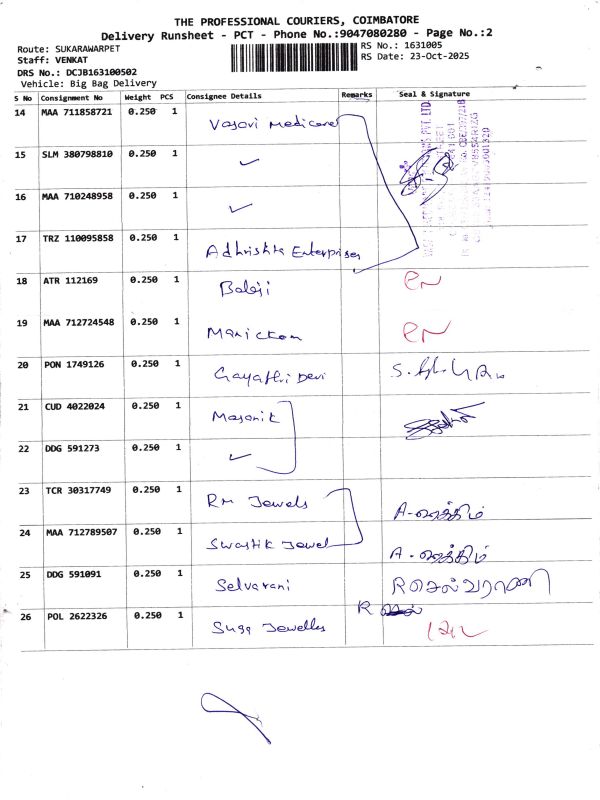 THE PROFESSIONAL COURIERS, COIMBATORE
Delivery Runsheet - PCT - Phone No.:9047080280 - Page No.:2
Route: SUKARAWARPET
RS No.: 1631005
Staff: VENKAT
RS Date: 23-Oct-2025
DRS No.: DCJB163100502
Vehicle: Big Bag Delivery
S No Consignment No Weight PCS Consignee Details Remarks Seal & Signature
14 MAA 711858721 0.250 1 Vasavi Medicare
15 SLM 380798810 0.250 1 ✓
16 MAA 710248958 0.250 1 ✓
17 TRZ 110095858 0.250 1 Adhrishta Enterprises
18 ATR 112169 0.250 1 Balaji
19 MAA 712724548 0.250 1 Manickam
20 PON 1749126 0.250 1 Gayathri Devi
21 CUD 4022024 0.250 1 Masonik
22 DDG 591273 0.250 1 ✓
23 TCR 30317749 0.250 1 RM Jewels
24 MAA 712789507 0.250 1 Swastik Jewel
25 DDG 591091 0.250 1 Selvarani R செல்வராணி
26 POL 2622326 0.250 1 R